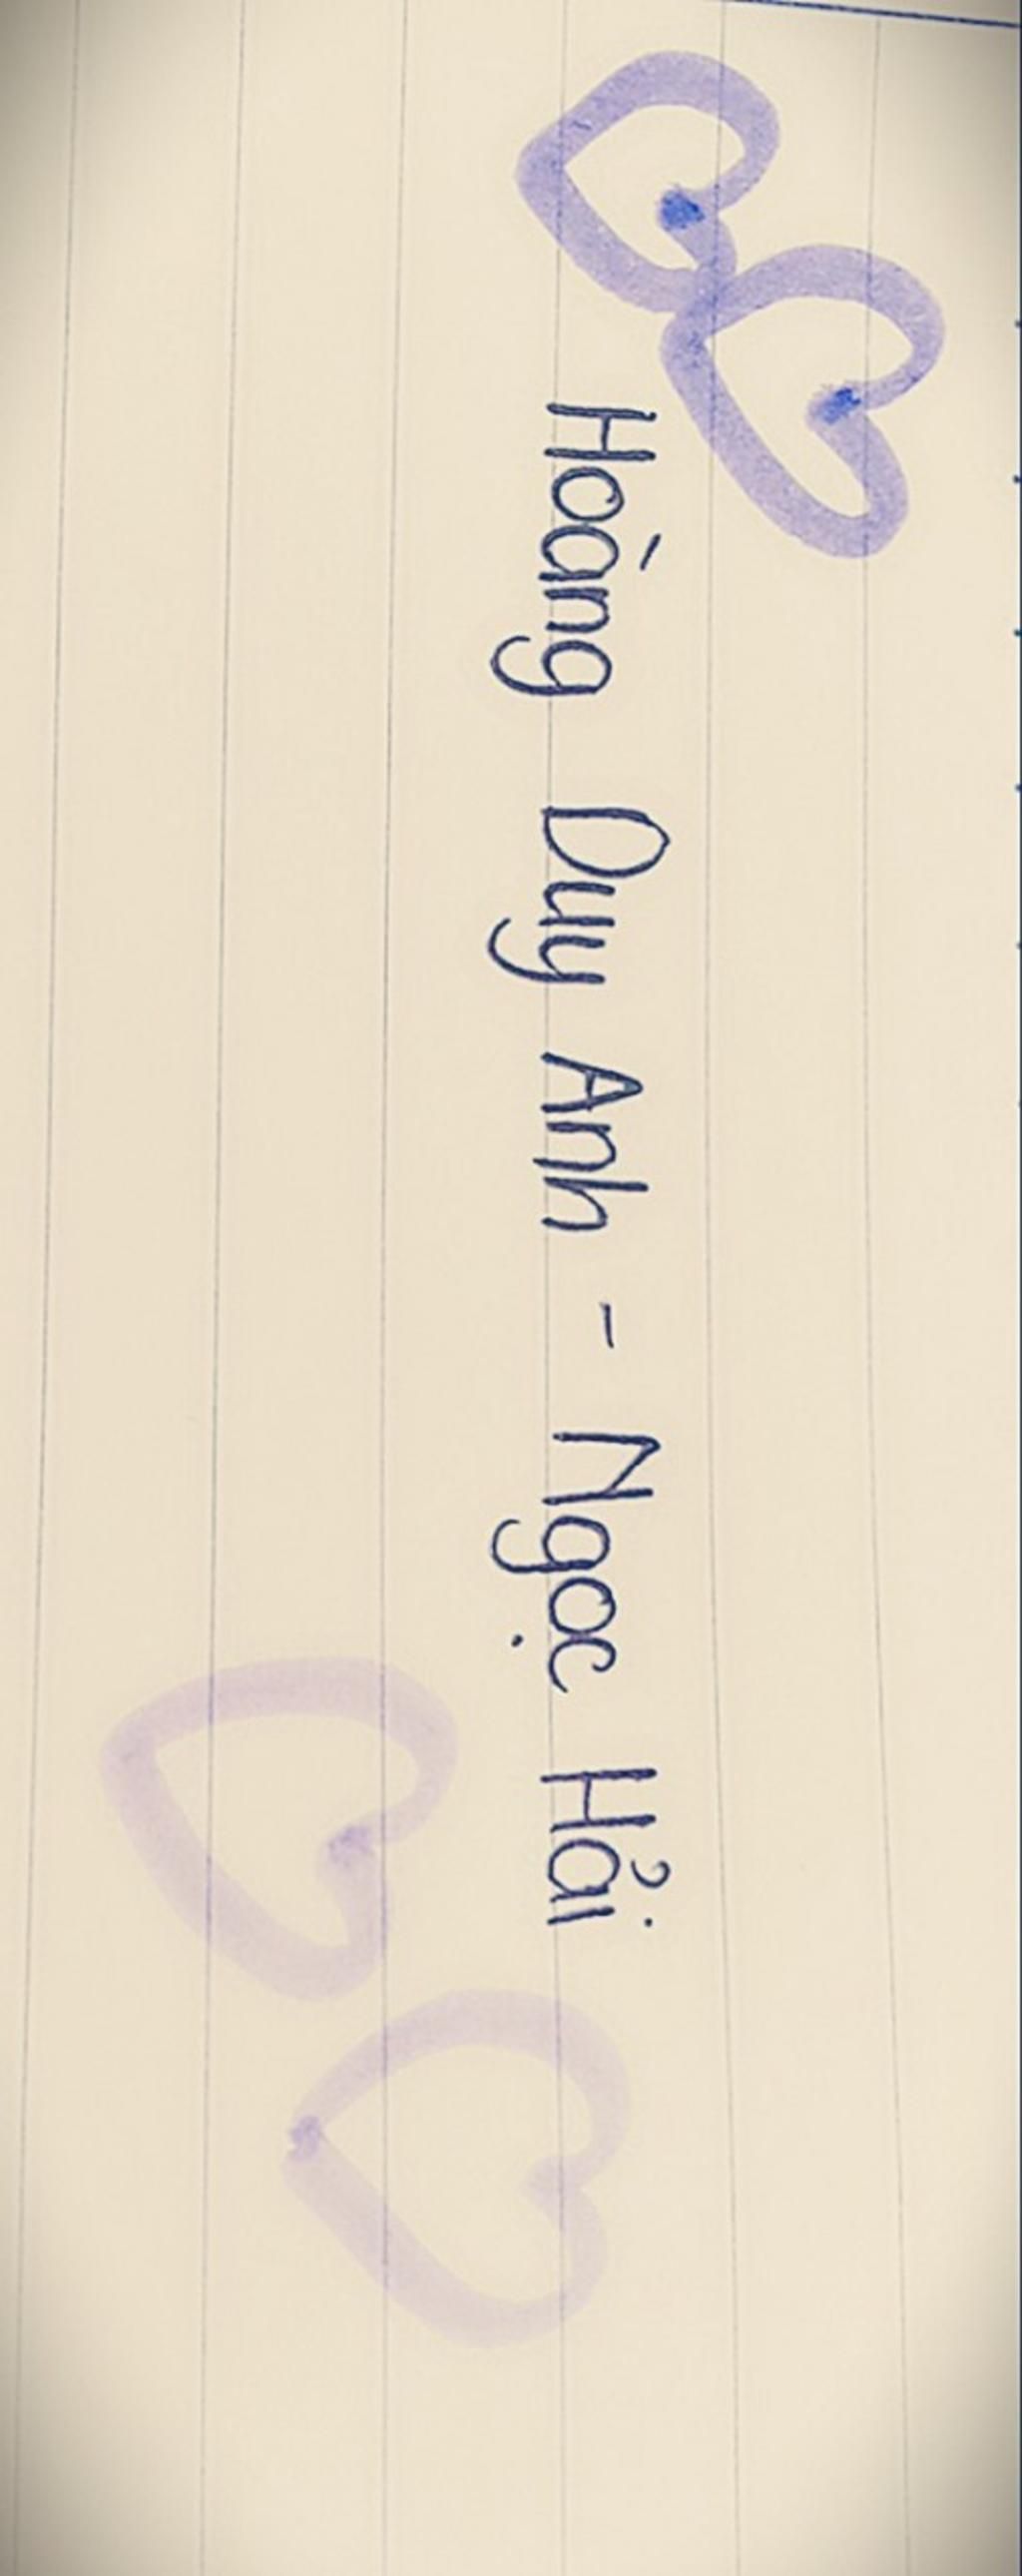 Hoàng Duy Anh - Ngọc Hải